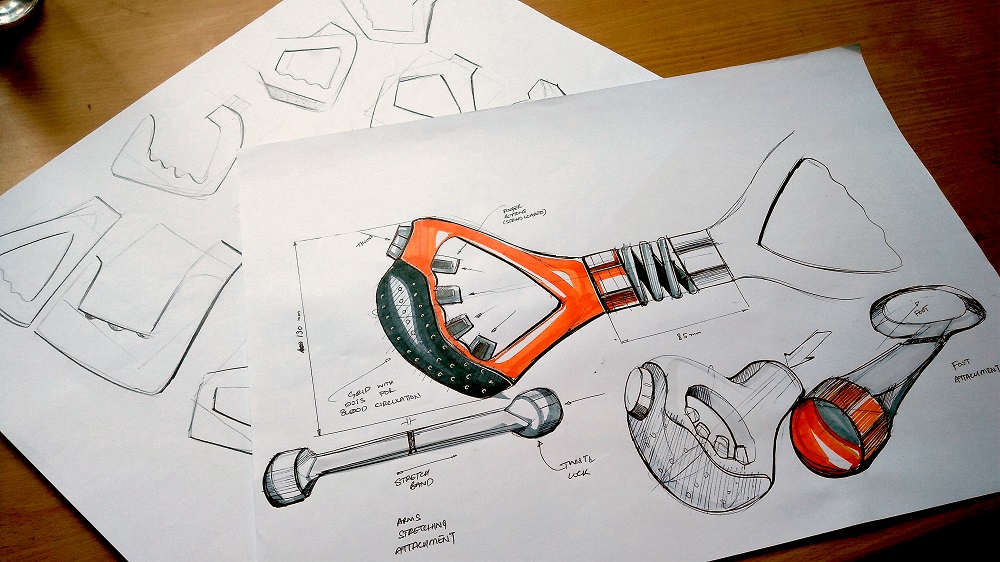 FINGER
ACTIONS
(SPRING LOADED)
THUMB
130 mm
85 mm
GRIP WITH
DOTS FOR
BLOOD CIRCULATION
STRETCH
BAND
TWIST &
LOCK
ARMS
STRETCHING
ATTACHMENT
FOOT
FOOT
ATTACHMENT